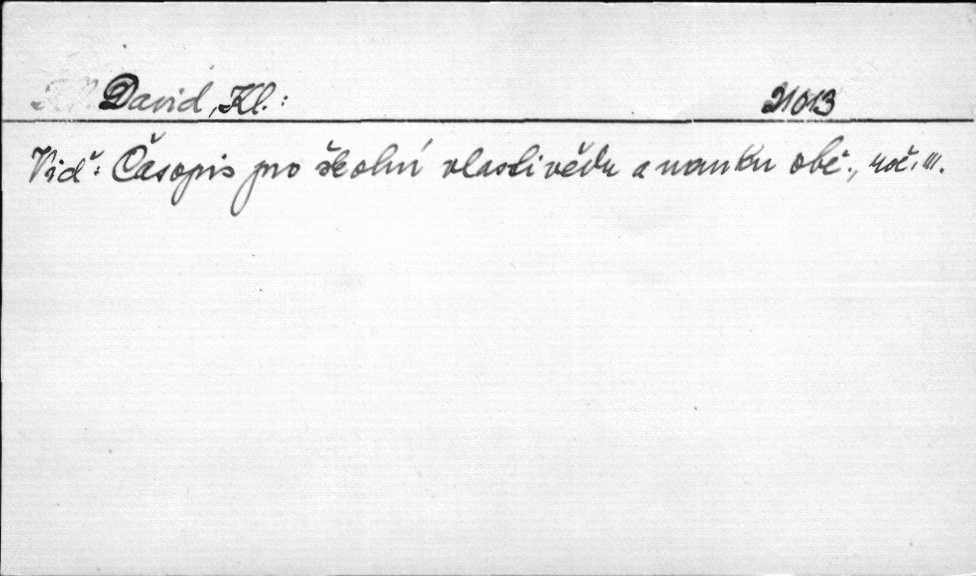 David, Kl.: 21013
Vid': Časopis pro školní vlastivědu a nauku obč., roč. III.